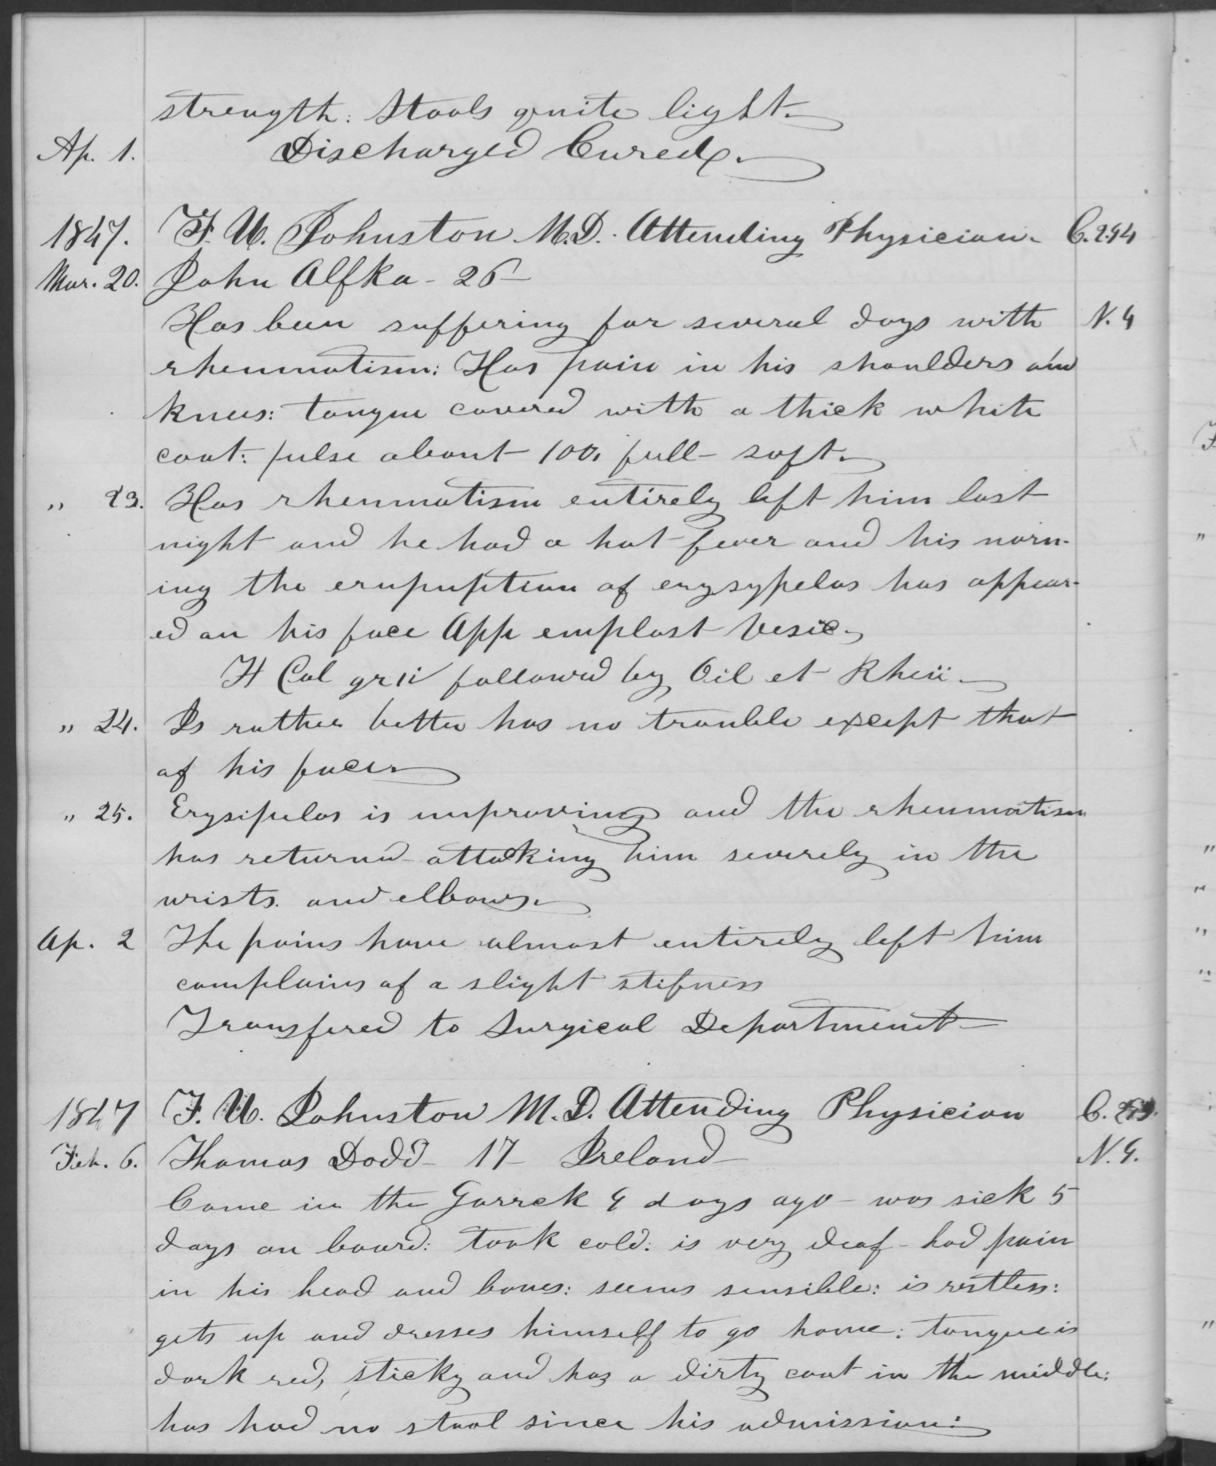 strength: Stools quite light.
Ap. 1. Discharged Cured.
1847. F. U. Johnston M.D. Attending Physician. C. 294
Mar. 20. John Alfka - 26 -
Has been suffering for several days with N. 4
rheumatism: Has pain in his shoulders and
knees: tongue covered with a thick white
coat: pulse about 100, full - soft.
" 23. Has rheumatism entirely left him last
night and he had a hot fever and his morn-
ing the erupuption of erysypelas has appear-
ed on his face App emplast Vesic.
H Cal gr followed by Oil et Rheii.
" 24. Is rather better has no trouble except that
of his face
" 25. Erysipelas is improving and the rheumatism
has returned attaking him severely in the
wrists. and elbows.
Ap. 2 The pains have almost entirely left him
complains of a slight stifness
Transfered to Surgical Department
1847 F. U. Johnston M.D. Attending Physician C.
Feb. 6. Thomas Dodd - 17 - Ireland N. 9.
Came in the Garrck 9 days ago - was sick 5
days on board: took cold: is very deaf - had pain
in his head and bones: seems sensible: is restless:
gets up and dresses himself to go home: tongue is
dark red, sticky and has a dirty coat in the middle:
has had no stool since his admission: